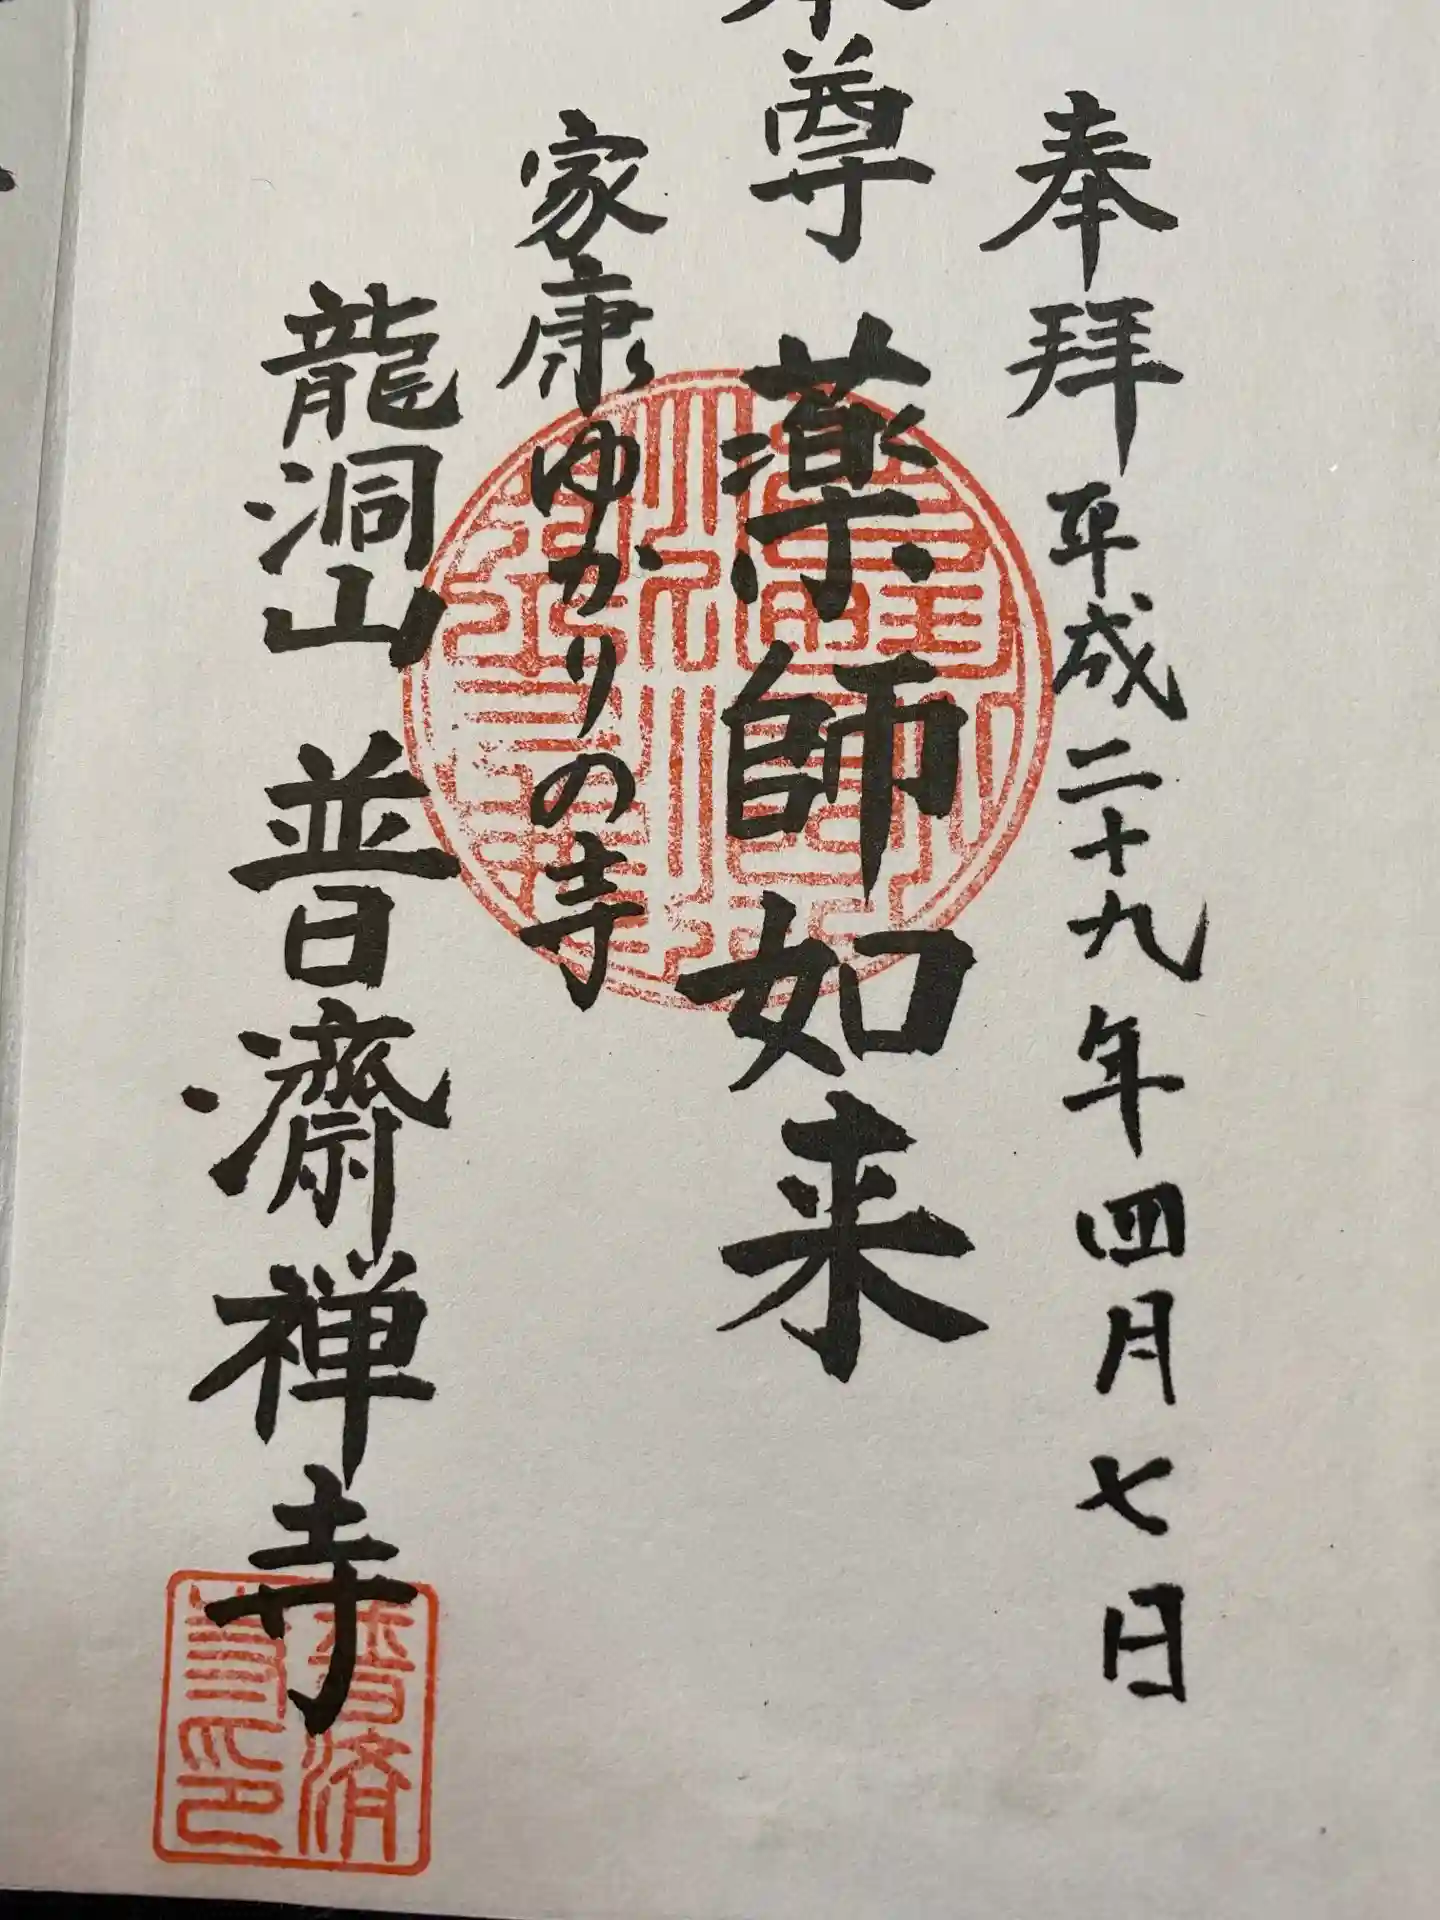 奉拝 平成二十九年四月七日
本尊 薬師如来
家康ゆかりの寺
龍洞山 普濟禅寺
普済
寺印